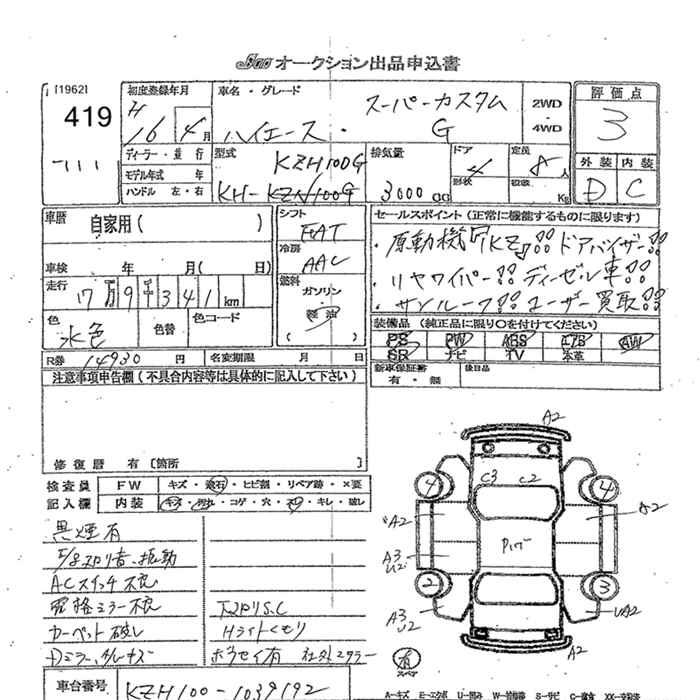 オークション出品申込書
[1962]
419
-111
初度登録年月
H
16 4月
車名・グレード
スーパーカスタム
ハイエース・ G
2WD
・
4WD
評価点
3
外装 内装
D C
ディーラー・並行
モデル年式 年
ハンドル 左・右
型式
KZH100G
KH-KZH100G
排気量
3000 cc
ドア 4
形状
定員 8人
積載 Kg
車歴
自家用( )
シフト
FAT
冷房
AAC
燃料
ガソリン
軽油
( )
セールスポイント(正常に機能するものに限ります)
・原動機『1KZ』!! ドアバイザー!!
・リヤワイパー!! ディーゼル車!!
・サンルーフ!! ユーザー買取!!
車検 年 月( 日)
走行 17万9千341km
色 水色
色替
色コード
R券 14930 円
名変期限 月 日
装備品(純正品に限り○を付けてください)
PS PW ABS エアB AW
SR ナビ TV 本革
新車保証書
有・無
後日品
注意事項申告欄(不具合内容等は具体的に記入して下さい)
修復歴 有〔箇所
検査員
記入欄
FW キズ・飛石・ヒビ割・リペア跡・×要
内装 キズ・汚れ・コゲ・穴・スレ・キレ・破し
黒煙有
振動
ACスイッチ不良
ミラー不良
カーペット破し
下回りS.C
Hライトくもり
社外ミラー
車台番号 KZH100-1039192
A2
C3 C2
4 4
A2 A2
Pルーフ
A3
U2
2 3
A3
U2
UA2
A2
有
スペア
A-キズ E-エクボ U-凹み W-補修跡 S-サビ